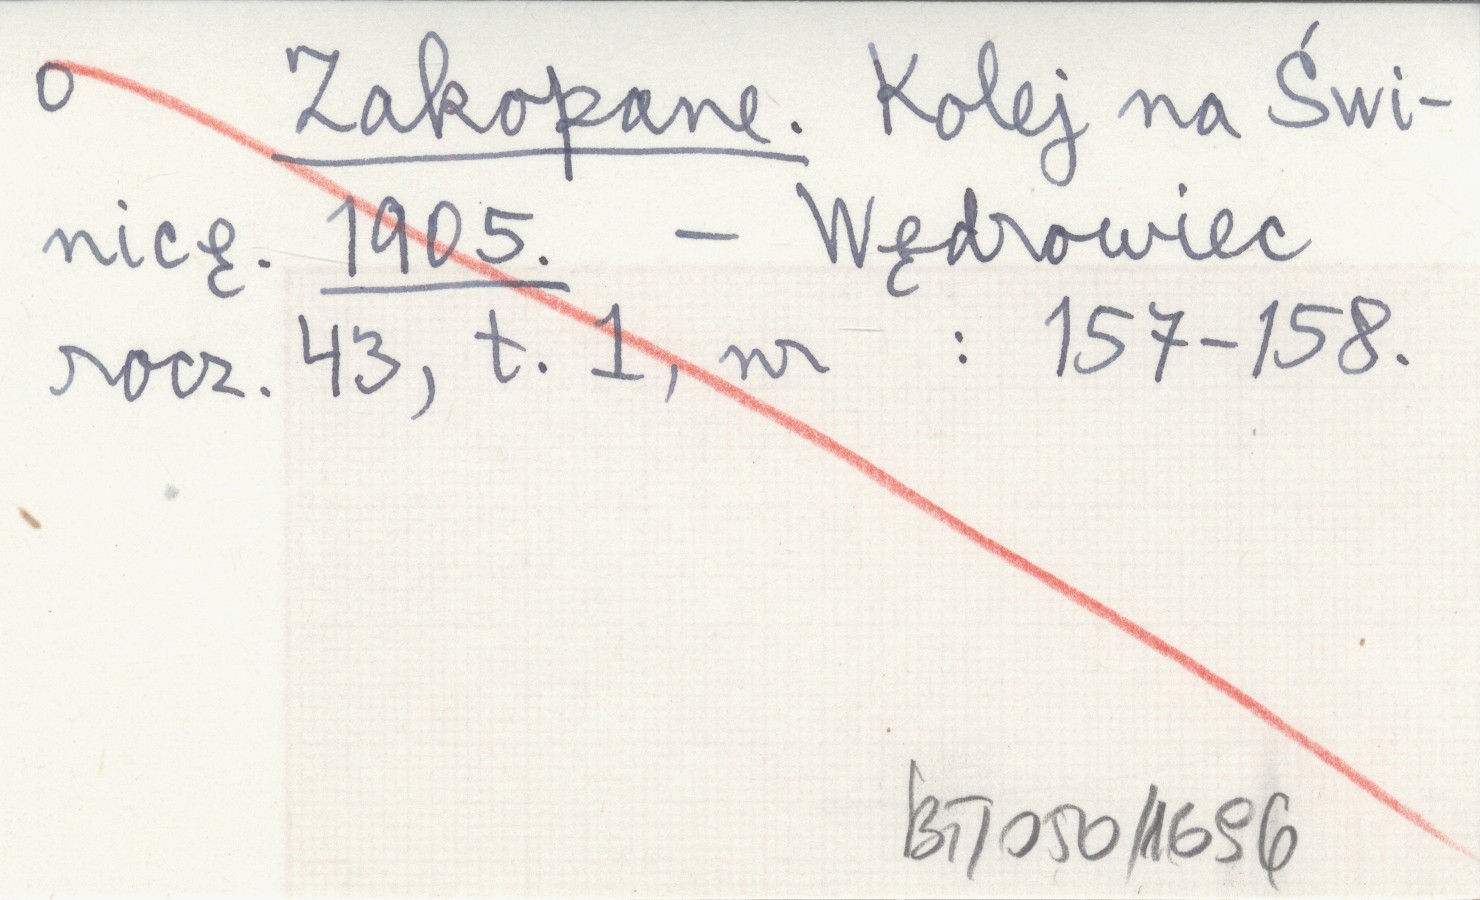 o Zakopane. Kolej na Świ-
nicę. 1905. – Wędrowiec
rocz. 43, t. 1, nr : 157-158.
BT/050/1696